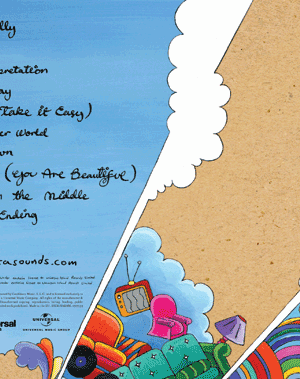 lly
pretation
ay
Take it Easy)
er World
wn
(You Are Beautiful)
n the Middle
Ending
casounds.com
ersal
UNIVERSAL
UNIVERSAL MUSIC GROUP